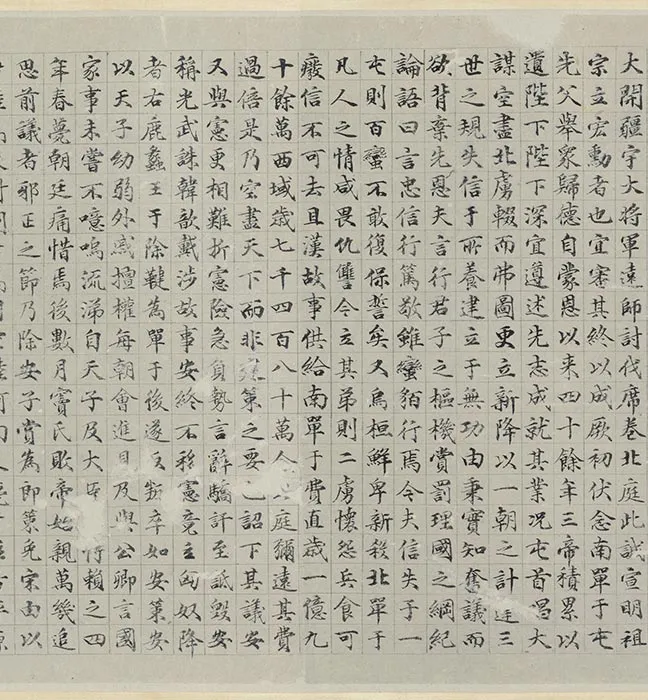 大開疆宇大將軍遠師討伐席卷北庭此誠宣明祖
宗立宏勳者也宜審其終以成厥初伏念南單于屯
先父舉眾歸德自蒙恩以来四十餘年三帝積累以
遺陛下陛下深宜遵述先志成就其業況屯首唱大
謀空盡北虜輟而弗圖更立新降以一朝之計違三
世之規失信于所養建立于無功由秉實知奪議而
欲背棄先恩夫言行君子之樞機賞罰理國之綱紀
論語曰言忠信行篤敬雖蠻貊行焉今夫信失于一
屯則百蠻不敢復保誓矣又烏桓鮮卑新殺北單于
凡人之情咸畏仇讎今立其弟則二虜懷怨兵食可
廢信不可去且漢故事供給南單于費直歳一億九
十餘萬西域歳七千四百八十萬今庭彌遠其費
過倍是乃空盡天下而非建策之要也詔下其議安
又與憲更相難折憲險急負勢言辭驕訐至詆毀安
稱光武誅韓歆戴涉故事安終不移憲竟立匈奴降
者右鹿蠡王于除鞬為單于後遂反叛卒如安策安
以天子幼弱外戚擅權每朝會進見及與公卿言國
家事未嘗不噫嗚流涕自天子及大臣恃賴之四
年春薨朝廷痛惜焉後數月竇氏敗帝始親萬幾追
思前議者邪正之節乃除安子賞為郎策免宋由以